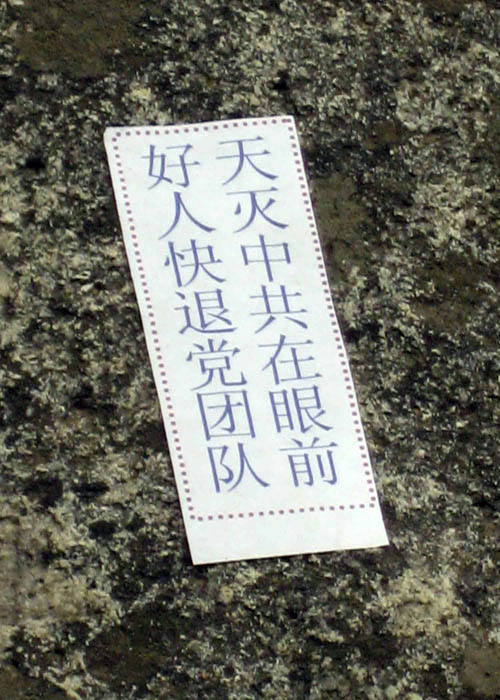 天灭中共在眼前
好人快退党团队